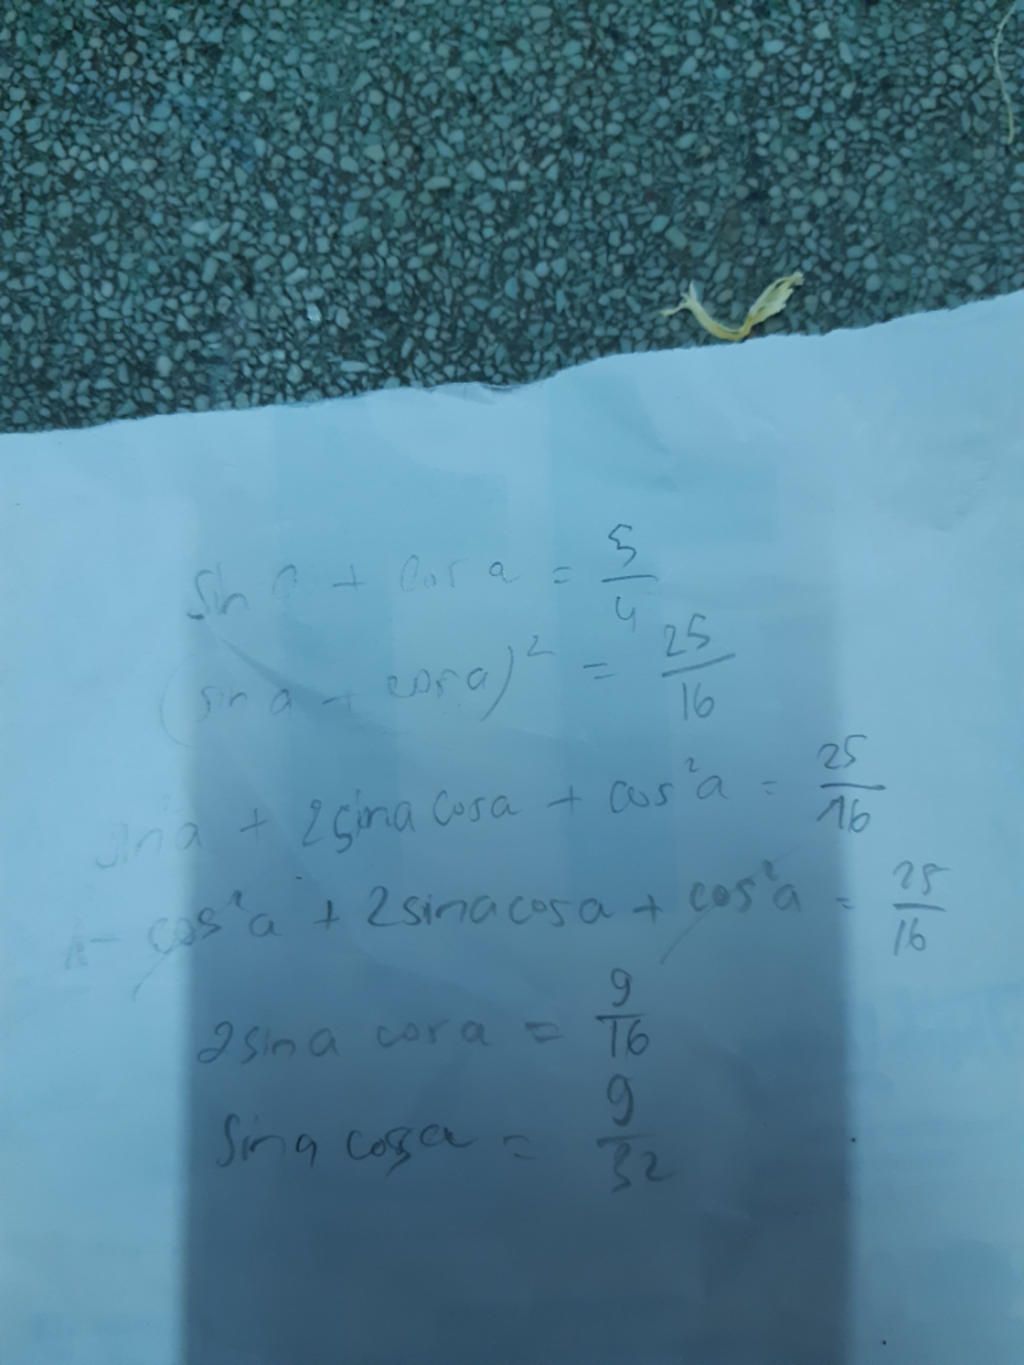 sin a + cos a = 5/4
(sin a + cos a)² = 25/16
sin²a + 2sina cosa + cos²a = 25/16
1 - cos²a + 2sina cosa + cos²a = 25/16
2sina cosa = 9/16
sina cosa = 9/32